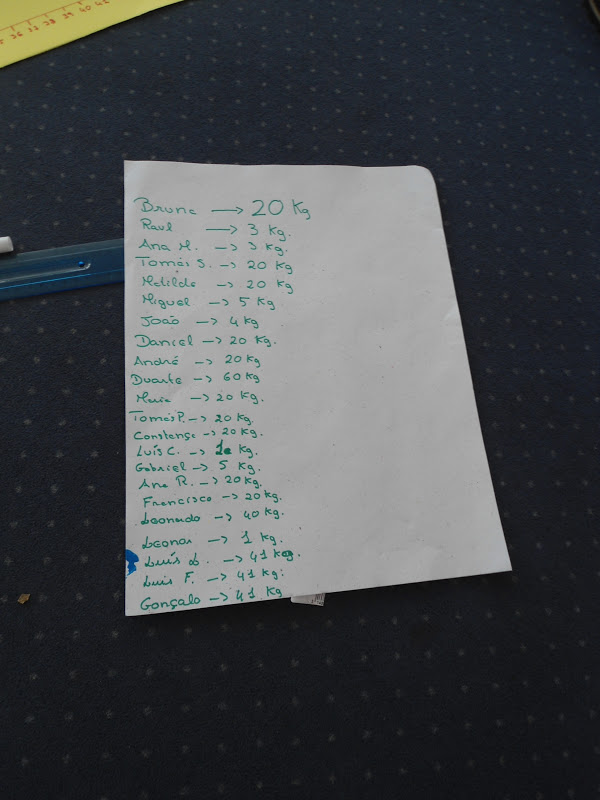 36 37 38 39 40 41
Bruna → 20 Kg
Raul → 3 Kg.
Ana M. → 3 Kg.
Tomás S. → 20 Kg
Matilde → 20 Kg
Miguel → 5 Kg
João → 4 Kg
Daniel → 20 Kg.
André → 20 Kg
Duarte → 60 Kg
Maria → 20 Kg.
Tomás P. → 20 Kg.
Constança → 20 Kg.
Luís C. → Kg.
Gabriel → 5 Kg.
Ana R. → 20 Kg.
Francisco → 20 Kg.
Leonardo → 40 Kg.
Leonor → 1 Kg.
Luís L. → 41 Kg.
Luís F. → 41 Kg.
Gonçalo → 41 Kg